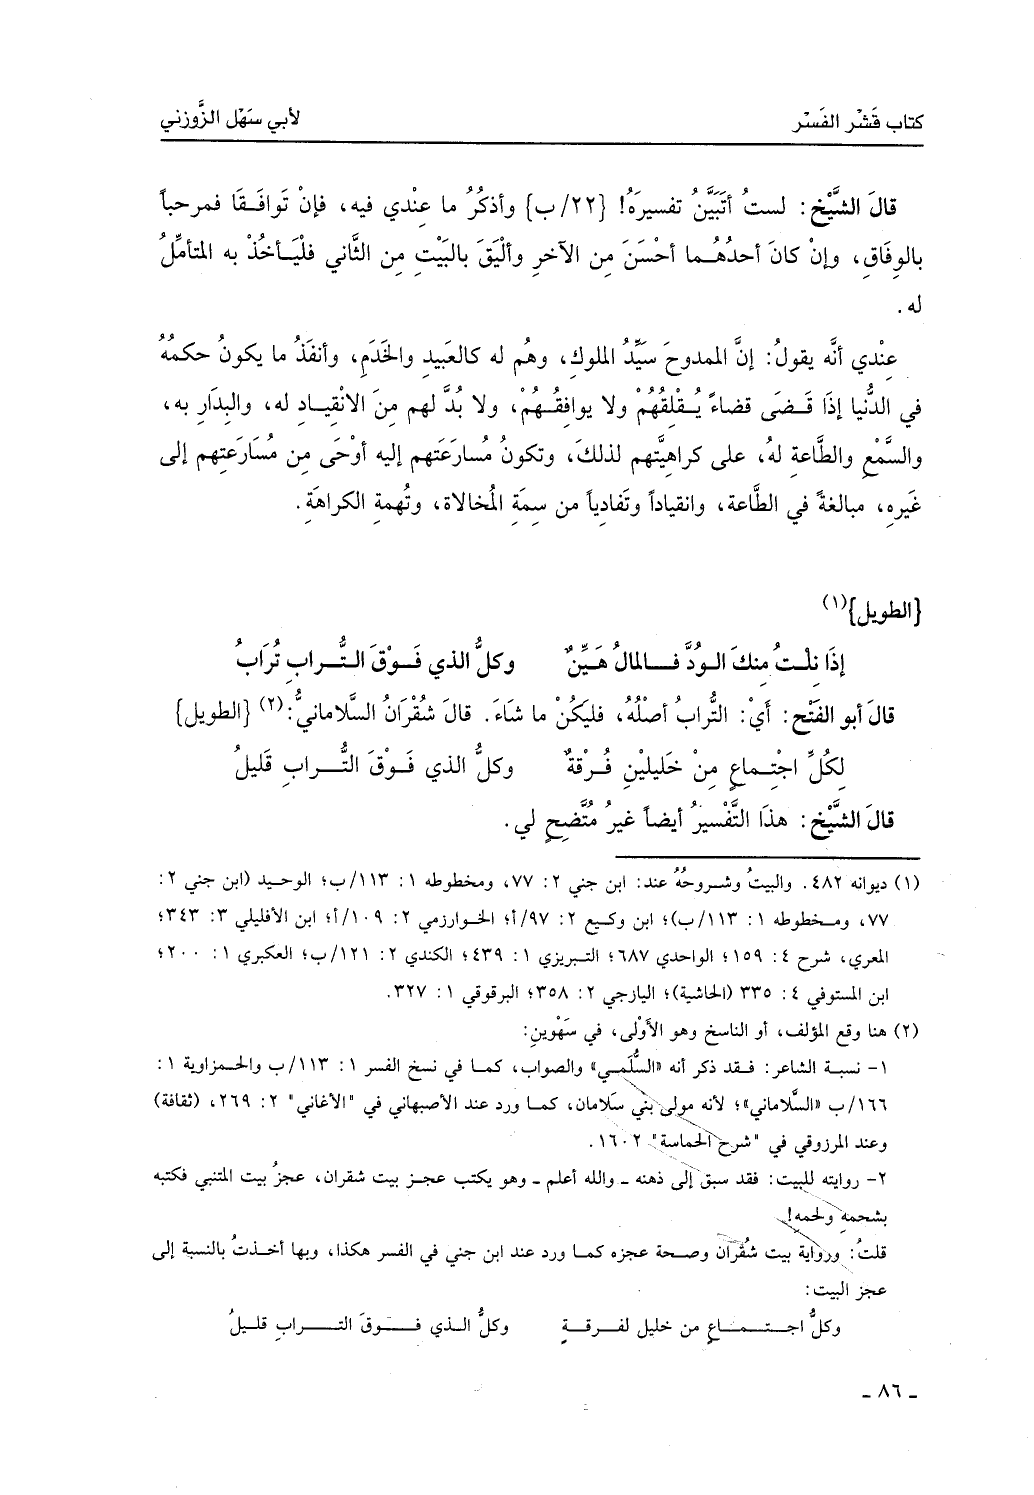 كتاب قَشْر الفَسْر لأبي سَهْل الزَّوزني
قالَ الشَّيْخ: لستُ أتَبَيَّنُ تفسيرَهُ! {٢٢/ب} وأذكُرُ ما عِنْدي فيه، فإنْ تَوافَـقَا فمرحباً
بالوِفَاقِ، وإنْ كانَ أحدُهُـما أحْسَنَ مِن الآخرِ وألْيَقَ بالبَيْتِ مِن الثَّاني فلْيَـأخُذْ به المتأمِّلُ
له.
عِنْدي أنَّه يقولُ: إنَّ الممدوحَ سَيِّدُ الملوكِ، وهُم له كالعَبيدِ والخَدَمِ، وأنفَذُ ما يكونُ حكمُهُ
في الدُّنيا إذَا قَـضَى قضاءً يُـقْلِقُهُمْ ولا يوافِقُـهُمْ، ولا بُدَّ لهم مِنَ الانْقِيـادِ له، والبِدَارِ به،
والسَّمْعِ والطَّاعةِ لهُ، على كراهيَّتهم لذلكَ، وتكونُ مُسارَعَتهم إليه أوْحَى مِن مُسَارَعتِهم إلى
غَيرِه، مبالغةً في الطَّاعة، وانقياداً وتَفادِياً من سِمَةِ المُخالاة، وتُهمةِ الكراهَةِ.
{الطويل}(١)
إذَا نِلْـتُ مِنكَ الـوُدَّ فـالمالُ هَيِّـنٌ وكلُّ الذي فَـوْقَ التُّـرابِ تُرَابُ
قالَ أبو الفَتْح: أَيْ: التُّرابُ أصْلُهُ، فليَكُنْ ما شَاءَ. قالَ شُقْرَانُ السَّلامانيُّ:(٢) {الطويل}
لِكُلِّ اجْتِـماعٍ مِنْ خَليلَيْنِ فُـرْقةٌ وكلُّ الذي فَـوْقَ التُّـرابِ قَليلُ
قالَ الشَّيْخ: هذَا التَّفْسيرُ أيضاً غيرُ مُتَّضِحٍ لي.
(١) ديوانه ٤٨٢. والبيتُ وشـروحُهُ عند: ابن جني ٢: ٧٧، ومخطوطه ١: ١١٣/ب؛ الوحيـد (ابن جني ٢:
٧٧، ومـخطوطه ١: ١١٣/ب)؛ ابن وكيع ٢: ٩٧/أ؛ الخوارزمي ٢: ١٠٩/أ؛ ابن الأفليلي ٣: ٣٤٣؛
المعري، شرح ٤: ١٥٩؛ الواحدي ٦٨٧؛ التبريزي ١: ٤٣٩؛ الكندي ٢: ١٢١/ب؛ العكبري ١: ٢٠٠؛
ابن المستوفي ٤: ٣٣٥ (الحاشية)؛ اليازجي ٢: ٣٥٨؛ البرقوقي ١: ٣٢٧.
(٢) هنا وقع المؤلف، أو الناسخ وهو الأَوْلى، في سَهْوين:
١- نسبـة الشاعر: فـقد ذكر أنه «السُّلَمـي» والصواب، كمـا في نسخ الفسر ١: ١١٣/ب والحـمزاوية ١:
١٦٦/ب «السَّلاماني»؛ لأنه مولى بني سَلامان، كمـا ورد عند الأصبهاني في "الأغاني" ٢: ٢٦٩، (ثقافة)
وعند المرزوقي في "شرح الحماسة" ١٦٠٢.
٢- روايته للبيت: فقد سبق إلى ذهنه ـ والله أعلم ـ وهو يكتب عجـز بيت شقران، عجزُ بيت المتنبي فكتبه
بشحمه ولحمه!.
قلتُ: ورواية بيت شُقْران وصـحة عجزه كمـا ورد عند ابن جني في الفسر هكذا، وبها أخـذتُ بالنسبة إلى
عجز البيت:
وكلُّ اجـتـمـاعٍ من خليل لفـرقـةٍ وكلُّ الـذي فـوقَ التـرابِ قلـيلُ
ـ ٨٦ ـ